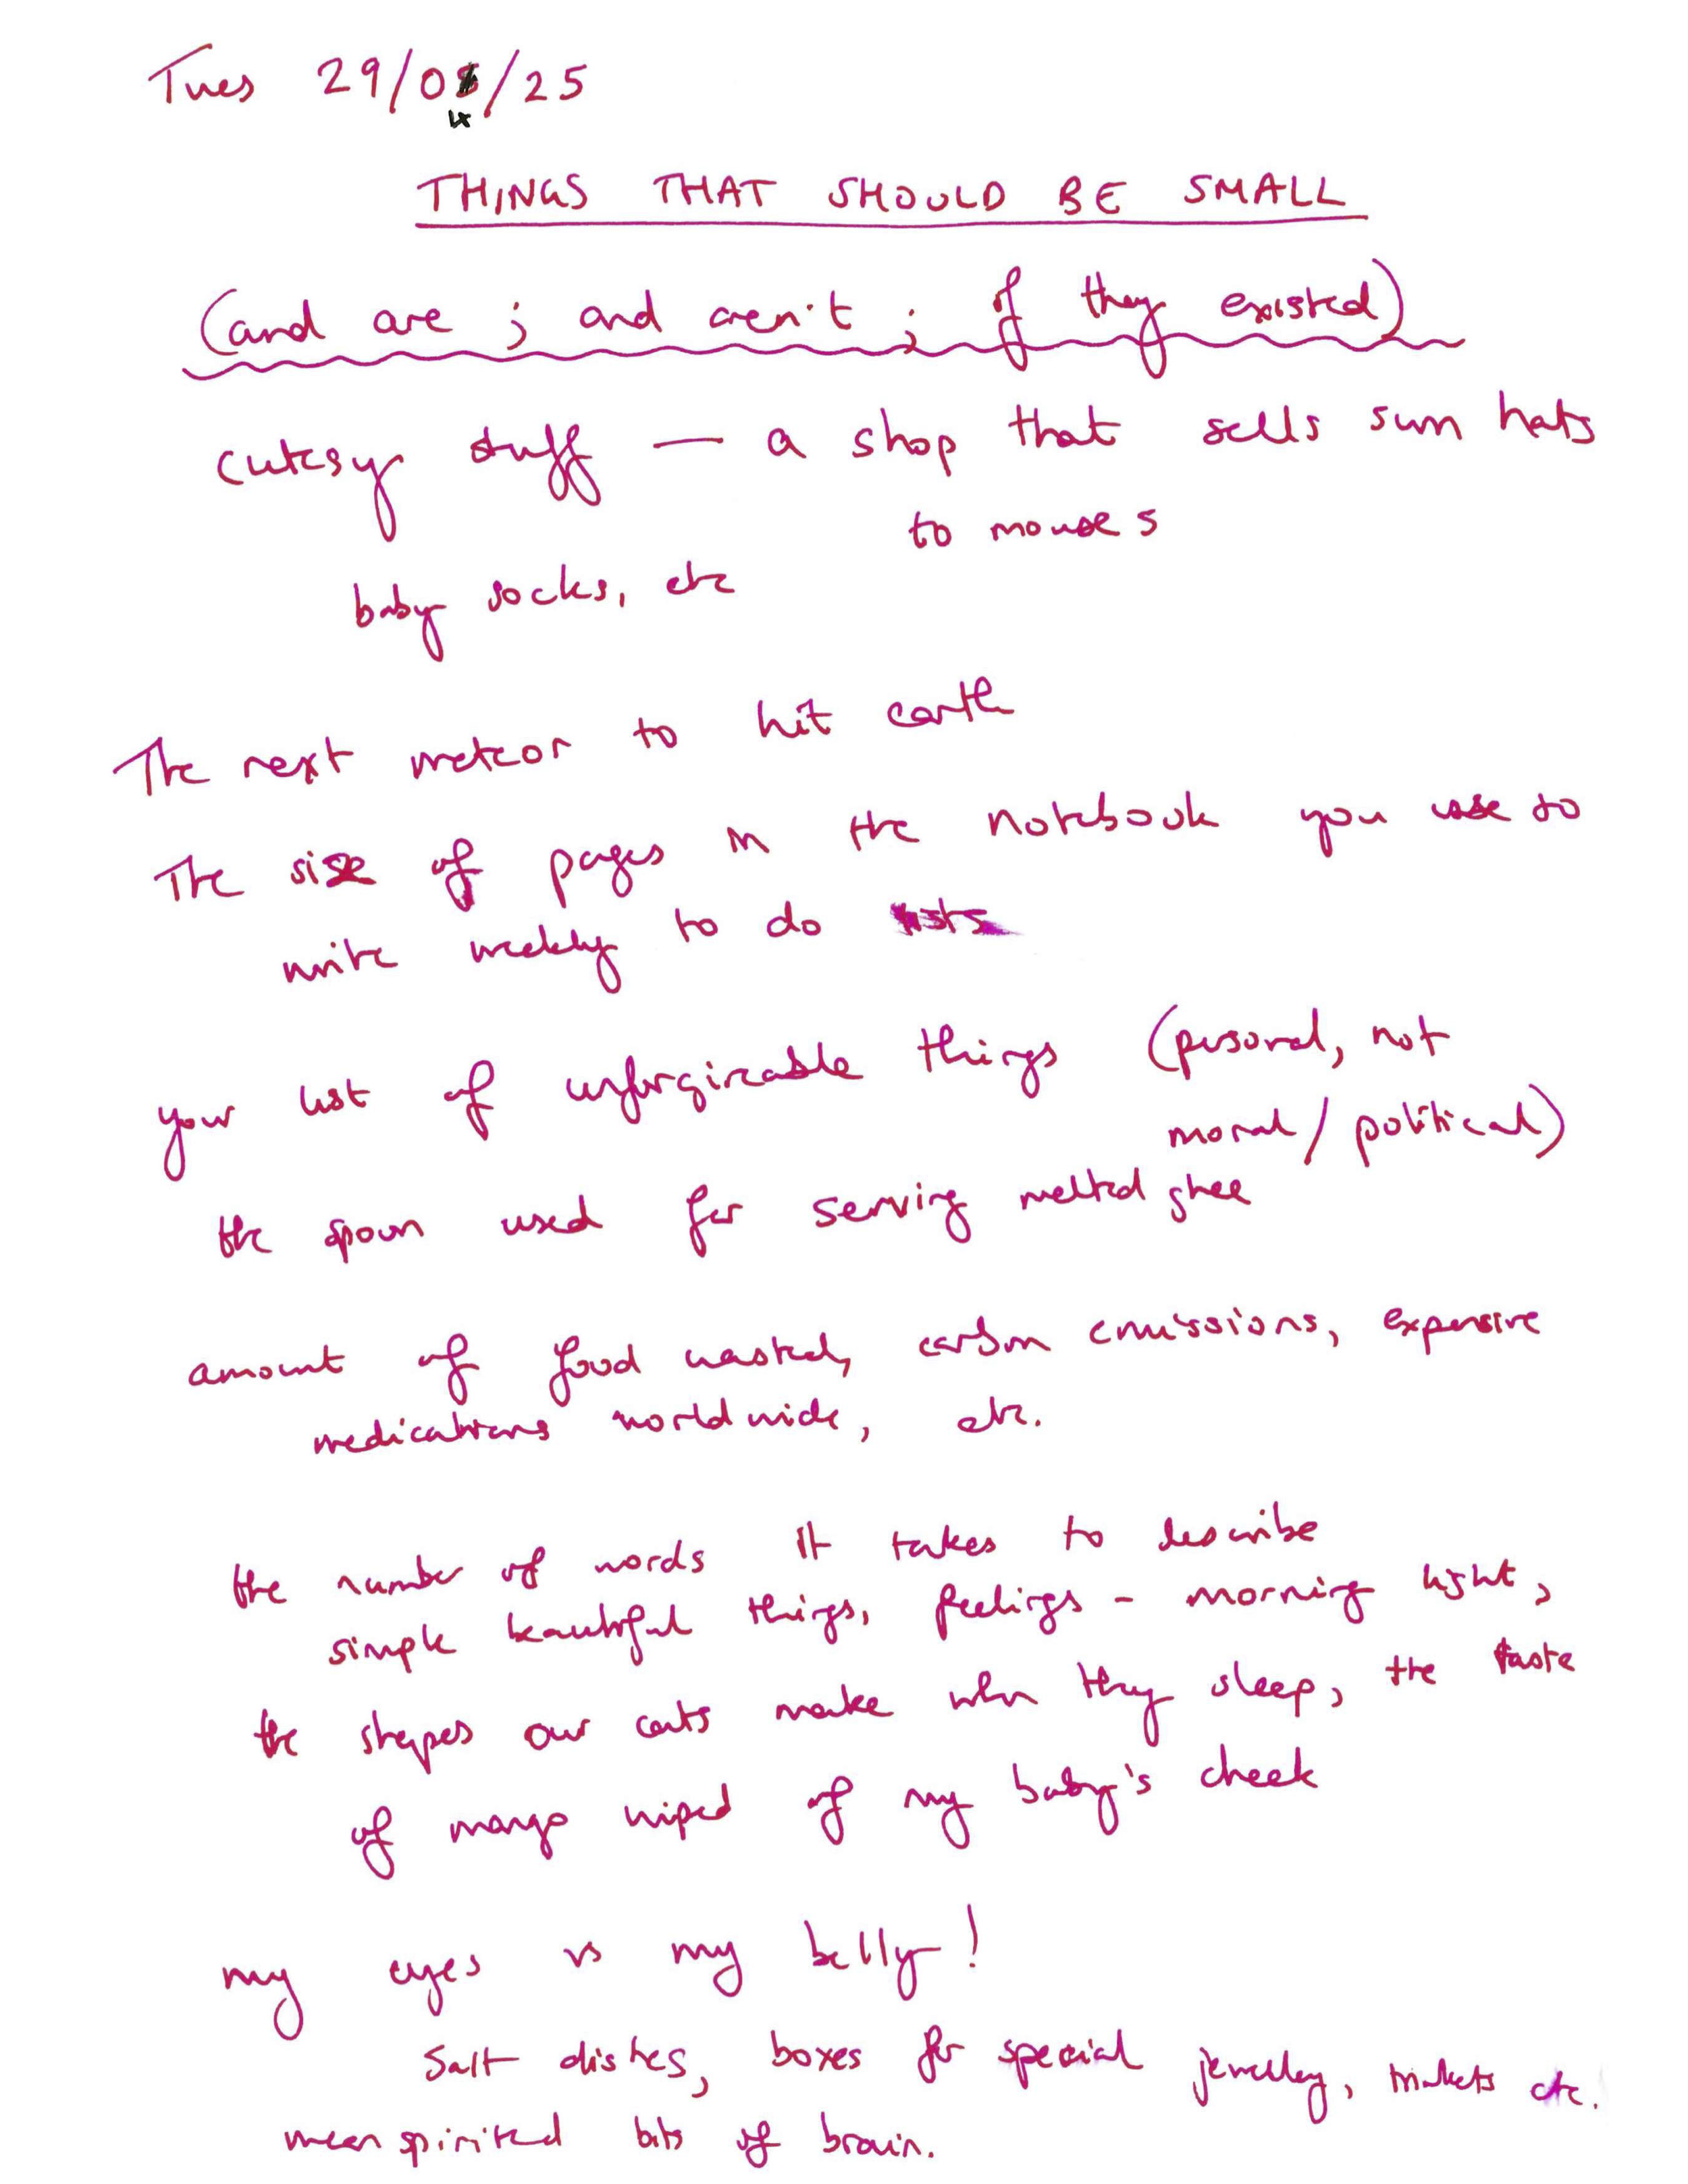 Tues 29/04/25
THINGS THAT SHOULD BE SMALL
(and are ; and aren't ; if they existed)
cutesy stuff — a shop that sells sun hats
to mouses
baby socks, etc
The next meteor to hit earth
The size of pages in the notebook you use to
write weekly to do lists
your list of unforgiveable things (personal, not
moral / political)
the spoon used for serving melted ghee
amount of food wasted, carbon emissions, expensive
medications worldwide, etc.
the number of words it takes to describe
simple beautiful things, feelings - morning light,
the shapes our cats make when they sleep, the taste
of mango wiped of my baby's cheek
my eyes vs my belly!
Salt dishes, boxes for special jewelley, trinkets etc.
mean spirited bits of brain.